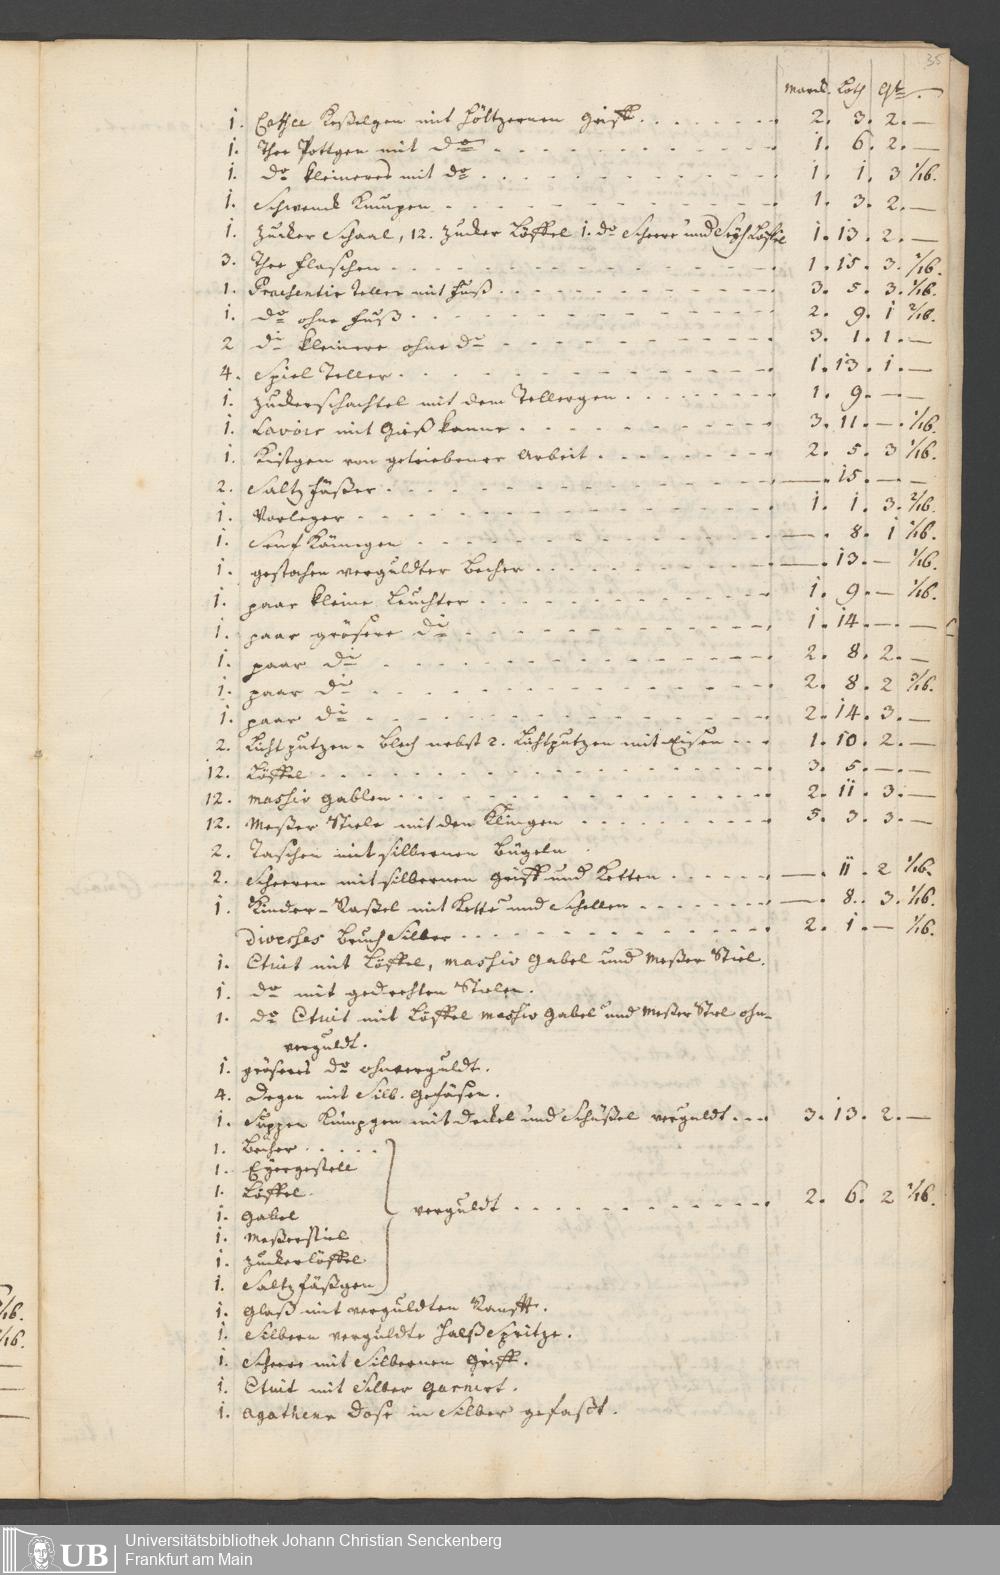 35
Marck. Loth Qt.
1. Coffee Keßelgen mit höltzernen Griff. 2. 3. 2. —
1. Thee Pottgen mit do 1. 6. 2. —
1. do kleineres mit do 1. 1. 3 1/16.
1. Schwenck Kumpen 1. 3. 2. —
1. Zucker Schaal, 12. Zucker Löffel 1. do Scheere und Löffel 1. 13. 2. —
3. Thee Flaschen 1. 15. 3. 1/16.
1. Praesentir Teller mit Fuß 3. 5. 3. 1/16.
1. do ohne Fuß 2. 9. 1
2 do kleinere ohne do 3. 1. 1. —
4. Spiel Teller 1. 13. 1. —
1. Zuckerschachtel mit dem Tellergen 1. 9. — —
1. Lavoir mit Gieß Kanne 3. 11. — 1/16.
1. Kistgen von getriebener Arbeit 2. 5. 3 1/16.
2. Saltz Fäßer — 15. — —
1. Vorleger 1. 1. 3. 2/16.
1. Senf Känngen — 8. 1 1/16.
1. gestochen verguldter Becher — 13. — 1/16.
1. paar kleine Leuchter 1. 9. — 1/16.
1. paar grösere do 1. 14. — —
1. paar do 2. 8. 2. —
1. paar do 2. 8. 2 3/16.
1. paar do 2. 14. 3. —
2. Lichtputzen-Blech nebst 2. Lichtputzen mit Eisen 1. 10. 2. —
12. Löffel 3. 5. — —
12. massiv Gablen 2. 11. 3. —
12. Meßer Stiele mit den Klingen 5. 3. 3. —
2. Taschen mit silbernen Bügeln
2. Scheeren mit silbernen Griff und Ketten — 11. 2 1/16.
1. Kinder-Raßel mit Kette und Schellen — 8. 3. 1/16.
Diverses Bruch Silber 2. 1. — 1/16.
1. Etuit mit Löffel, massiv Gabel und Meßer Stiel.
1. do mit gedrehten Stielen.
1. do Etuit mit Löffel massiv Gabel und Meßer Stiel ohn-
verguldt.
1. gröseres do ohnverguldt.
4. Degen mit Silb. Gefäsen.
1. Suppen Kümpgen mit Deckel und Schüßel verguldt 3. 13. 2. —
1. Becher
1. Eyergestell
1. Löffel
1. Gabel
verguldt 2. 6. 2 1/16.
1. Meßerstiel
1. Zuckerlöffel
1. Saltzfäßgen
1. Glaß mit verguldten Ranfft.
1. Silbern verguldte Halß Spritze.
1. Scheere mit Silbernen Griff.
1. Etuit mit Silber garnirt.
1. Agathene Dose in Silber gefasst.
Universitätsbibliothek Johann Christian Senckenberg
Frankfurt am Main
UB